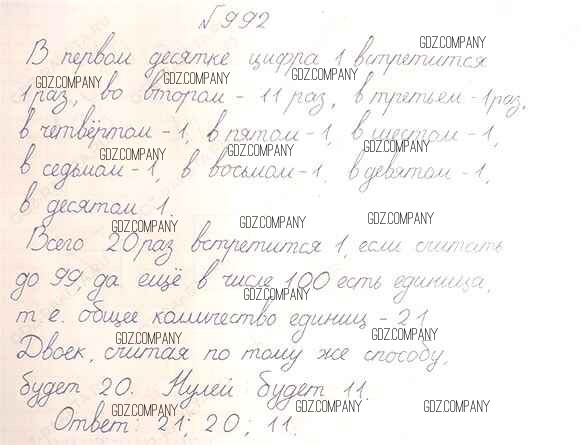 №992
В первом десятке цифра 1 встретится
1 раз, во втором - 11 раз, в третьем - 1 раз,
в четвёртом - 1, в пятом - 1, в шестом - 1,
в седьмом - 1, в восьмом - 1, в девятом - 1,
в десятом 1.
Всего 20 раз встретится 1, если считать
до 99, да ещё в числе 100 есть единица,
т.е. общее количество единиц - 21
Двоек, считая по тому же способу,
будет 20. Нулей будет 11.
Ответ: 21; 20; 11.
GDZ.COMPANY
GDZ.COMPANY GDZ.COMPANY GDZ.COMPANY
GDZ.COMPANY GDZ.COMPANY GDZ.COMPANY
GDZ.COMPANY GDZ.COMPANY GDZ.COMPANY
GDZ.COMPANY
GDZ.COMPANY GDZ.COMPANY
GDZ.COMPANY GDZ.COMPANY GDZ.COMPANY